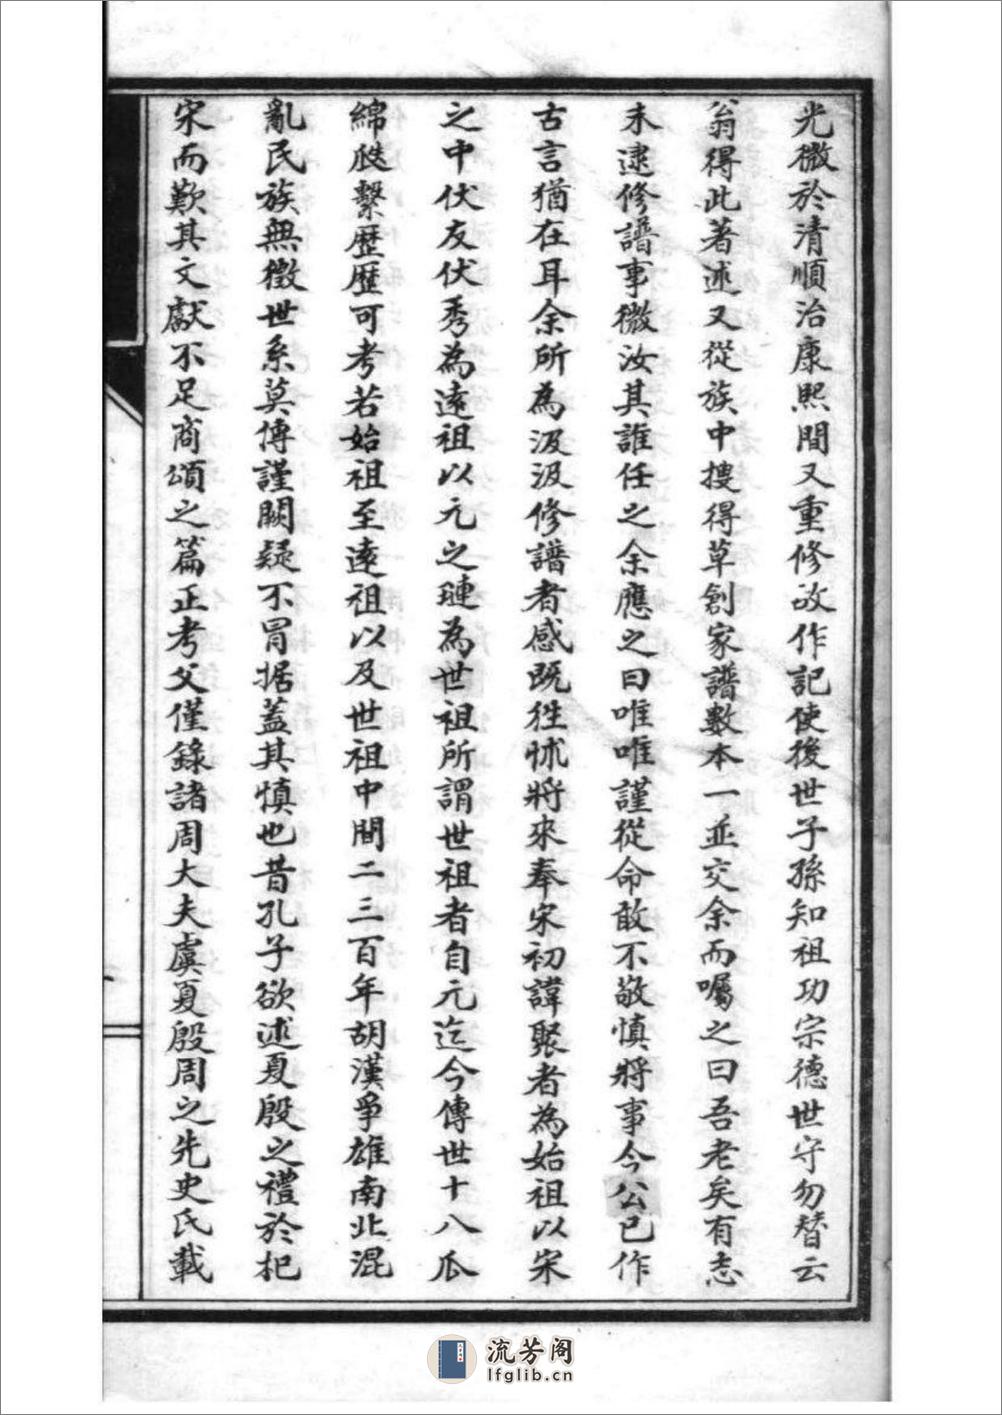 光微於清順治康熙間又重修故作記使後世子孫知祖功宗德世守勿替云
翁得此著述又從族中搜得草創家譜數本一並交余而囑之曰吾老矣有志
未逮修譜事微汝其誰任之余應之曰唯唯謹從命敢不敬慎將事今公已作
古言猶在耳余所為汲汲修譜者感既往怵將來奉宋初諱聚者為始祖以宋
之中伏友伏秀為遠祖以元之璉為世祖所謂世祖者自元迄今傳世十八瓜
綿瓞繫歷歷可考若始祖至遠祖以及世祖中間二三百年胡漢爭雄南北混
亂民族無徵世系莫傳謹闕疑不冒据蓋其慎也昔孔子欲述夏殷之禮於杞
宋而歎其文獻不足商頌之篇正考父僅錄諸周大夫虞夏殷周之先史氏載
流芳阁
lfglib.cn